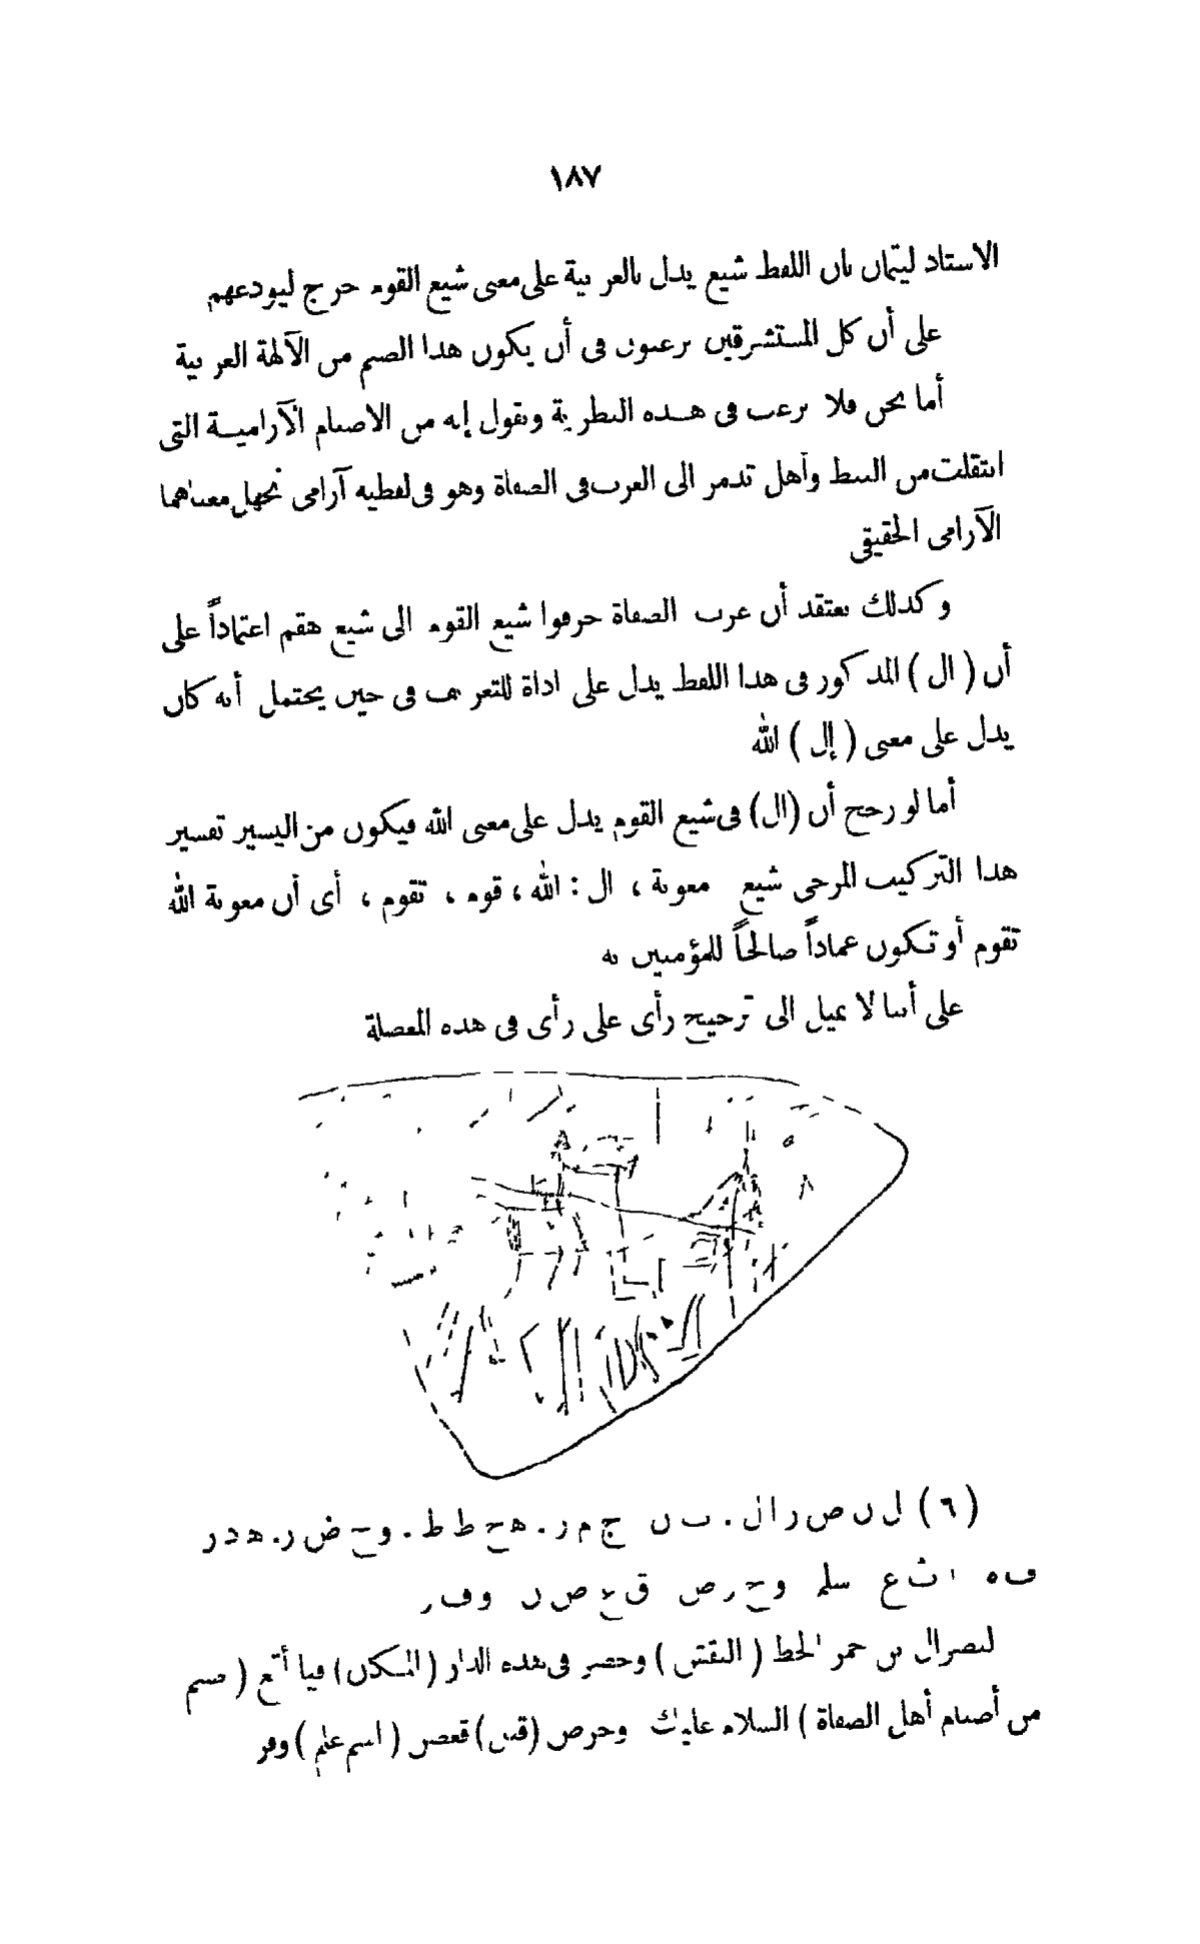 ١٨٧
الاستاذ ليتمان بأن اللفظ شيع يدل بالعربية على معنى شيع القوم خرج ليودعهم
على أن كل المستشرقين يرغبون فى أن يكون هذا الصنم من الآلهة العربية
أما نحن فلا نرغب فى هذه النظرية ونقول إنه من الاصنام الآرامية التى
انتقلت من النبط وأهل تدمر الى العرب فى الصفاة وهو فى لفظيه آرامى نجهل معناهما
الآرامى الحقيقى
وكذلك نعتقد أن عرب الصفاة حرفوا شيع القوم الى شيع هقم اعتماداً على
أن ( ال ) المذكور فى هذا اللفظ يدل على اداة للتعريف فى حين يحتمل أنه كان
يدل على معنى ( إل ) الله
أما لو رجح أن (ال) فى شيع القوم يدل على معنى الله فيكون من اليسير تفسير
هذا التركيب المزجى شيع معونة ، ال : الله ، قوم ، تقوم ، أى أن معونة الله
تقوم أو تكون عماداً صالحاً للمؤمنين به
على أننا لا نميل الى ترجيح رأى على رأى فى هذه المعضلة
(٦) ل ن ص ر ال . ب ن ج م ر . ه خ ط ط . و ح ض ر . ه د ر
ف ه ا ث ع سلم و ح ر ص ق ع ص ن وف ر
لنصرال بن جمر الخط ( النقش ) وحضر فى هذه الدار ( المكان ) فيا أثع ( صنم
من أصنام أهل الصفاة ) السلام عليك وحرص (قبر) قعصن ( اسم علم ) وفر